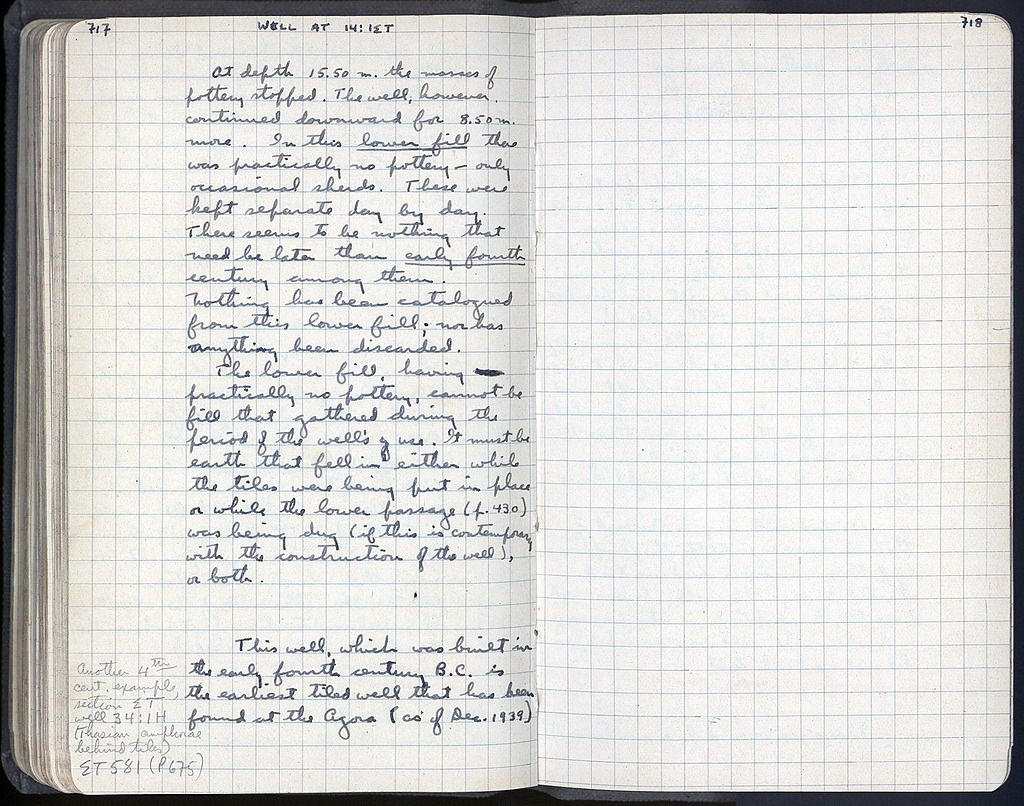 717
WELL AT 14:ΙΣΤ
718
At depth 15.50 m. the masses of
pottery stopped. The well, however,
continued downward for 8.50 m.
more. In this lower fill there
was practically no pottery – only
occasional sherds. These were
kept separate day by day.
There seems to be nothing that
need be later than early fourth
century among them.
Nothing has been catalogued
from this lower fill; nor has
anything been discarded.
The lower fill, having
practically no pottery, cannot be
fill that gathered during the
period of the well's use. It must be
earth that fell in either while
the tiles were being put in place
or while the lower passage (p. 430)
was being dug (if this is contemporary
with the construction of the well),
or both.
This well, which was built in
the early fourth century B.C. is
the earliest tiled well that has been
found at the Agora (as of Dec. 1939)
Another 4th
cent. example,
section ΣT
well 34:ΙΗ
(Thasian amphorae
behind tiles)
ΣT 581 (P675)